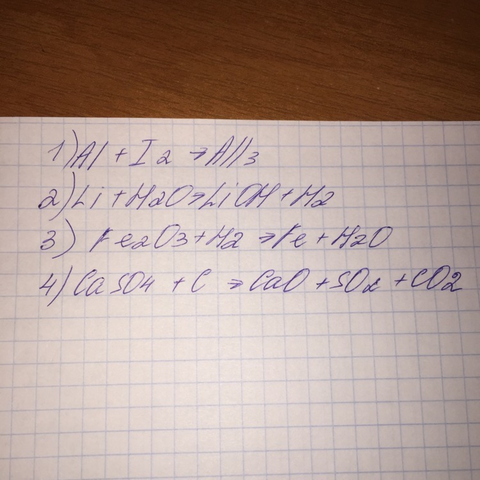 1) Al + I2 → AlI3
2) Li + H2O → LiOH + H2
3) Fe2O3 + H2 → Fe + H2O
4) CaSO4 + C → CaO + SO2 + CO2